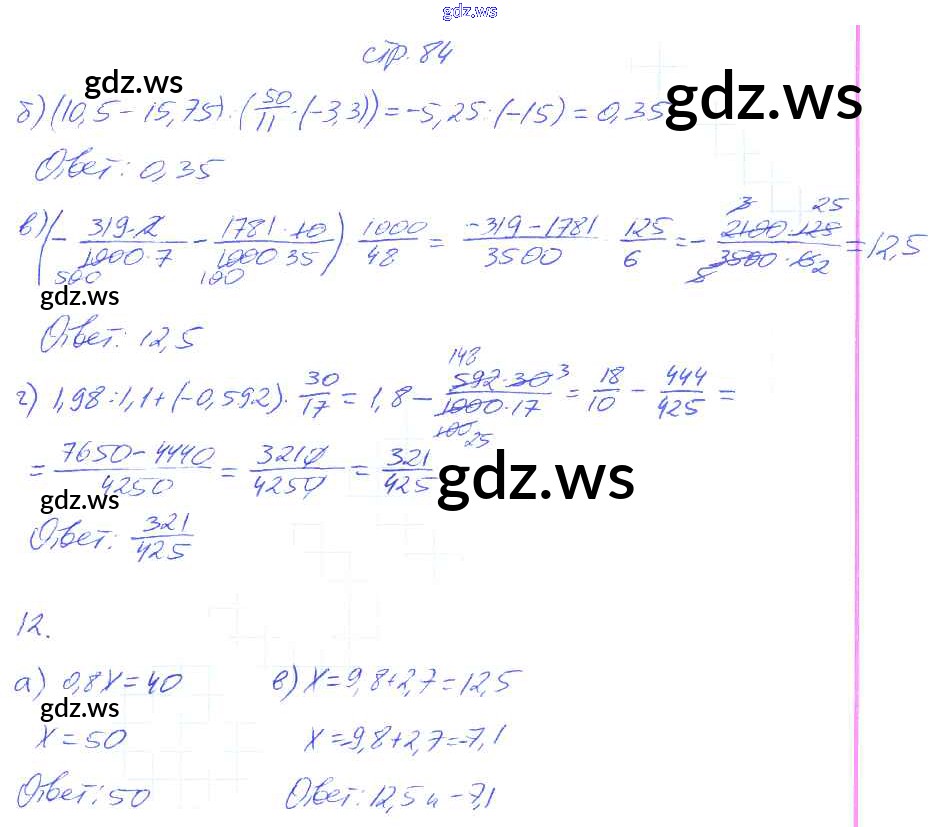 gdz.ws
стр. 84
gdz.ws
gdz.ws
б) (10,5 - 15,75) : (50/11 · (-3,3)) = -5,25 : (-15) = 0,35
Ответ: 0,35
в) (- 319·2/1000·7 - 1781·10/1000 35) 1000/48 = -319-1781/3500 125/6 = - 2100·125/3500·6 = 12,5
3 25
500 100
5 2
gdz.ws
Ответ: 12,5
г) 1,98 : 1,1 + (-0,592) · 30/17 = 1,8 - 592·30/1000·17 = 18/10 - 444/425 =
148 3
100 25
= 7650-4440/4250 = 3210/4250 = 321/425
gdz.ws
gdz.ws
Ответ: 321/425
12.
а) 0,8x = 40
в) x = 9,8+2,7 = 12,5
gdz.ws
x = 50
x = -9,8+2,7 = -7,1
Ответ: 50
Ответ: 12,5 и -7,1